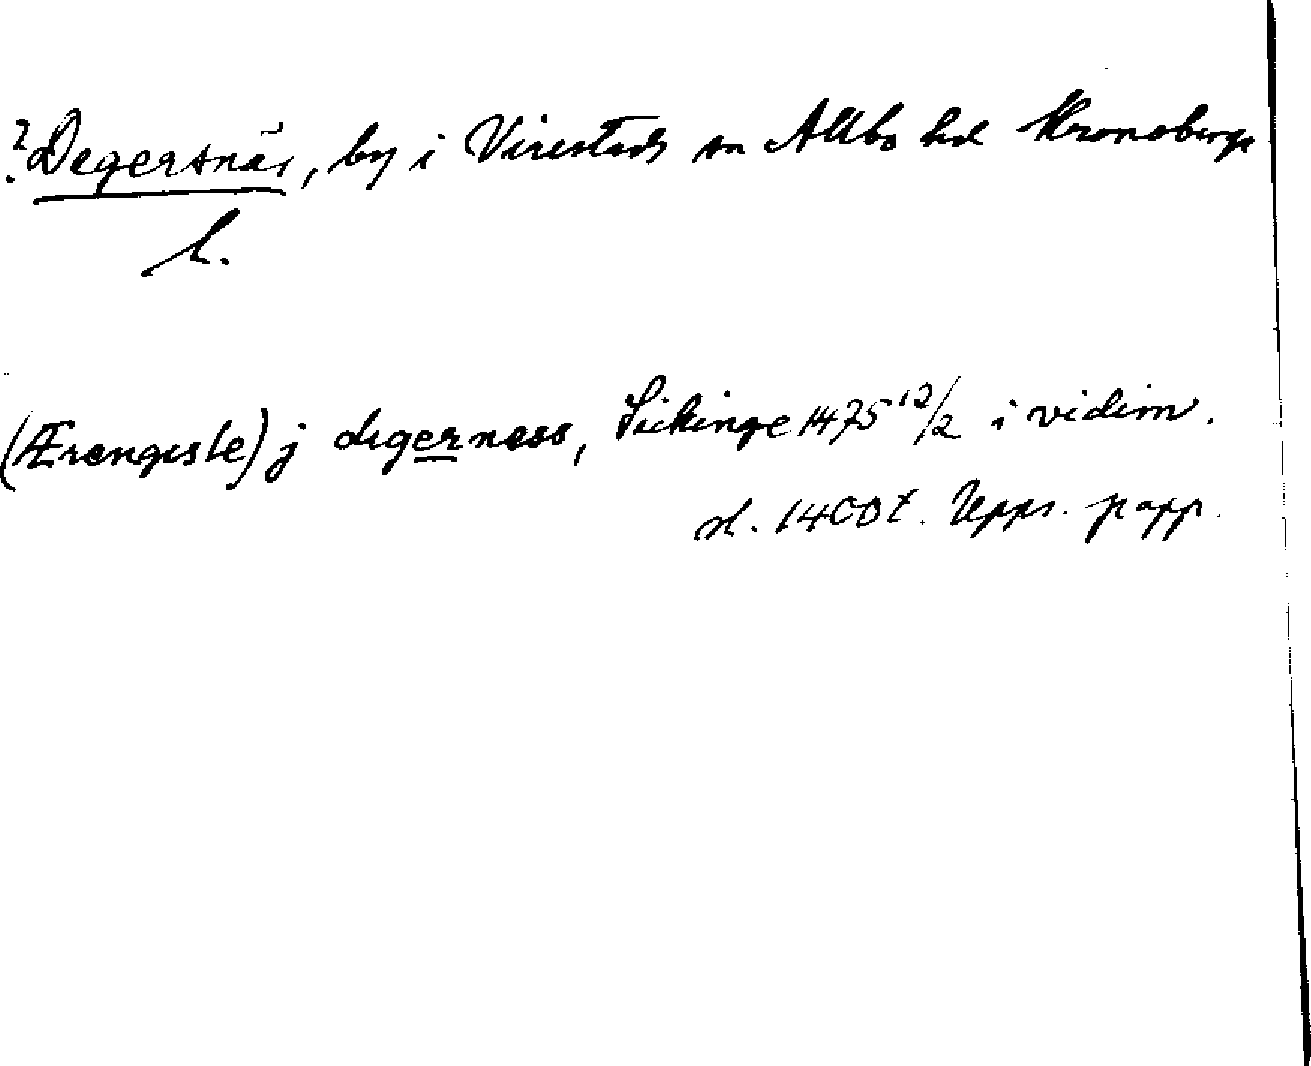 ? Degersnäs, by i Virestads sn Allbo hd Kronobergs
l.
(Ærengisle) j digerness, Sickinge 1475 12/2 i vidim.
sl. 1400 t. Upps. papp.